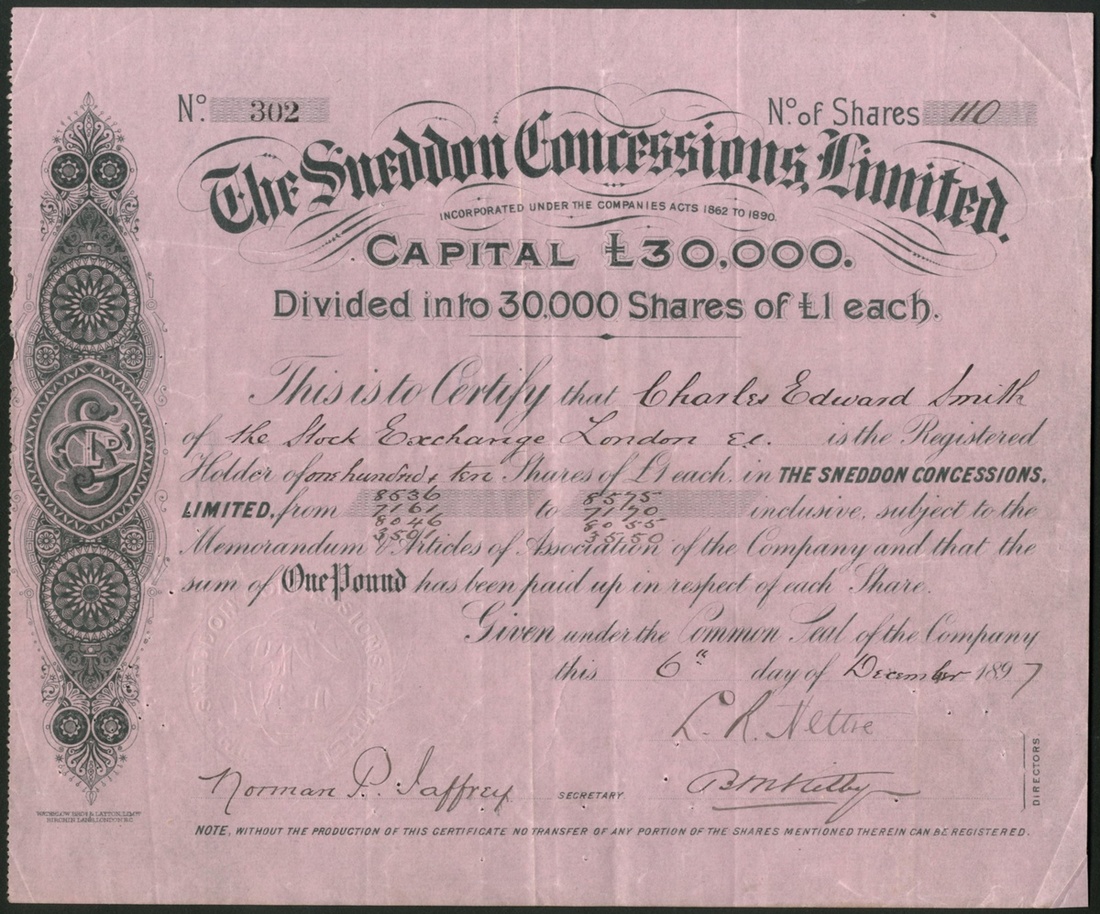 No. 302
No. of Shares 110
The Sneddon Concessions, Limited.
INCORPORATED UNDER THE COMPANIES ACTS 1862 TO 1890.
CAPITAL £30,000.
Divided into 30.000 Shares of £1 each.
This is to Certify that Charles Edward Smith
of the Stock Exchange London E.C. is the Registered
Holder of one hundred & ten Shares of £1 each, in THE SNEDDON CONCESSIONS,
8536 8575
LIMITED, from 7161 to 7170 inclusive, subject to the
8046 8055
3501 35150
Memorandum & Articles of Association of the Company and that the
sum of One Pound has been paid up in respect of each Share.
Given under the Common Seal of the Company
this 6th day of December 1897
L. R.
Norman P. Jaffrey SECRETARY
DIRECTORS
NOTE, WITHOUT THE PRODUCTION OF THIS CERTIFICATE NO TRANSFER OF ANY PORTION OF THE SHARES MENTIONED THEREIN CAN BE REGISTERED.